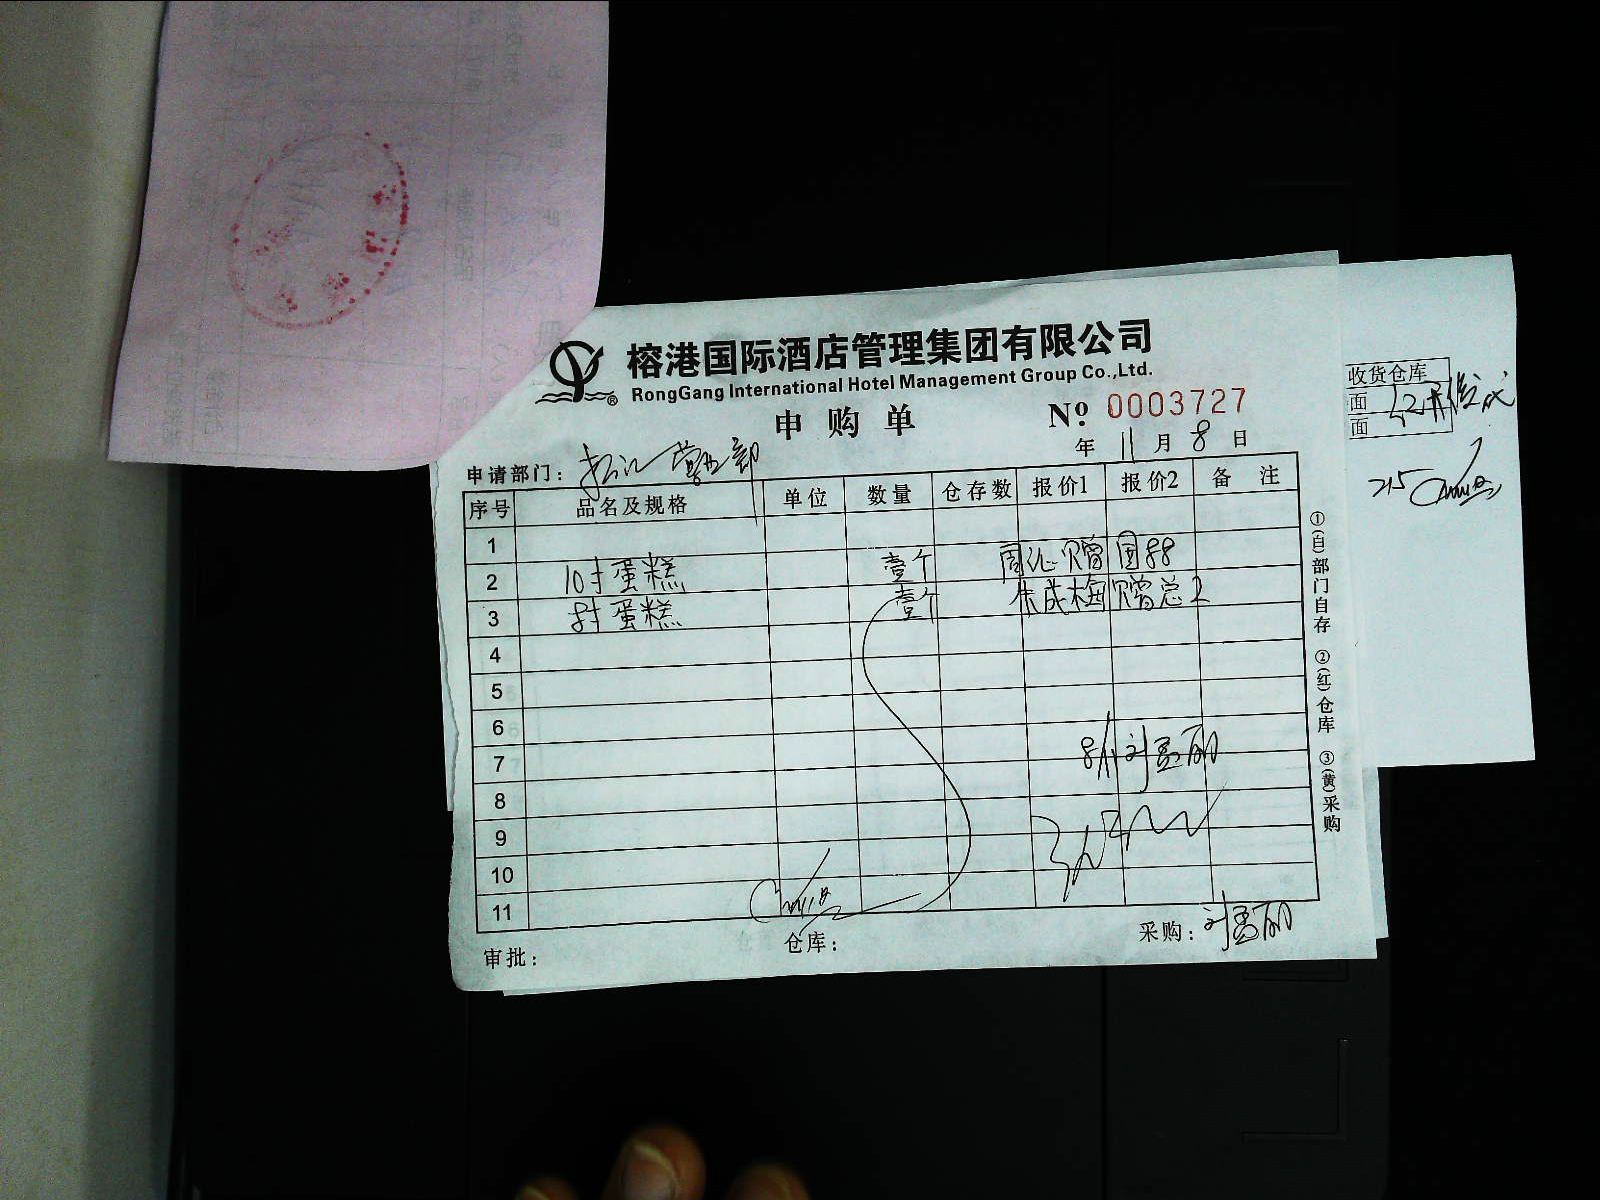 榕港国际酒店管理集团有限公司
RongGang International Hotel Management Group Co.,Ltd.
申购单
№ 0003727
年 11 月 8 日
申请部门: 营业部
序号 品名及规格 单位 数量 仓存数 报价1 报价2 备 注
1
2 10寸蛋糕 壹个 赠国88
3 8寸蛋糕 壹个 朱成梅 赠总2
4
5
6
7
8
9
10
11
审批: 仓库: 采购:
①(白)部门自存 ②(红)仓库 ③(黄)采购
收货仓库
面
面
215